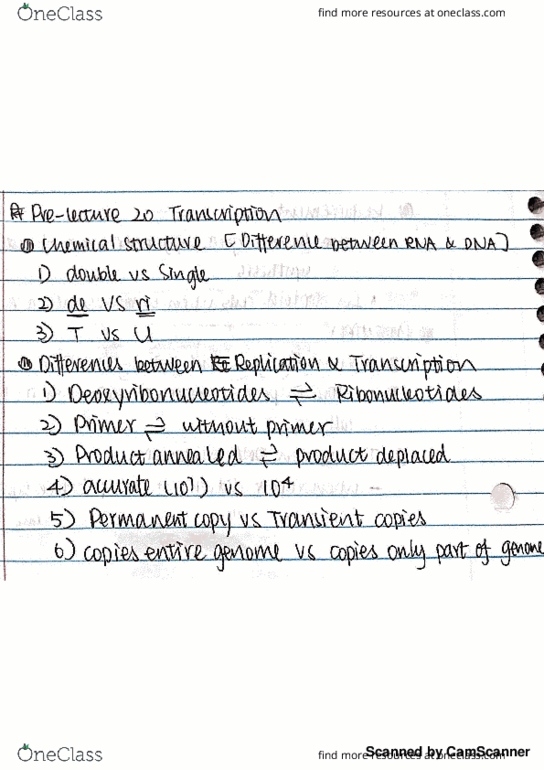 OneClass
find more resources at oneclass.com
Pre-lecture 20 Transcription
Chemical structure [Difference between RNA & DNA]
1) double vs Single
2) de VS ri
3) T vs U
Differences between Replication & Transcription
1) Deoxyribonucleotides ⇌ Ribonucleotides
2) Primer ⇌ without primer
3) Product annealed ⇌ product deplaced
4) accurate (10⁷) vs 10⁴
5) Permanent copy vs Transient copies
6) copies entire genome vs copies only part of genome
OneClass
find more resources at oneclass.com
Scanned by CamScanner